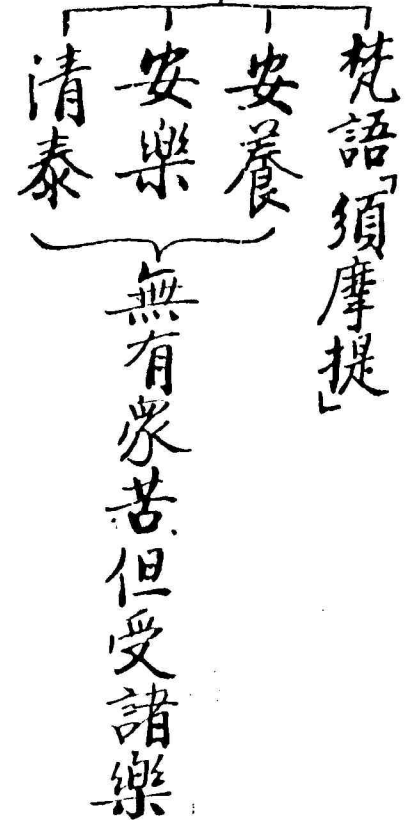 梵語「須摩提」
安養
安樂
清泰
無有眾苦、但受諸樂